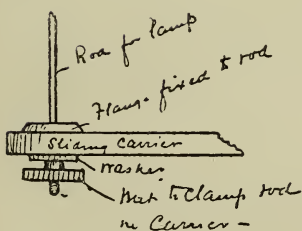 Rod for lamp
Flang. fixed to rod
Sliding Carrier
washer
Nut to Clamp rod
in Carrier -